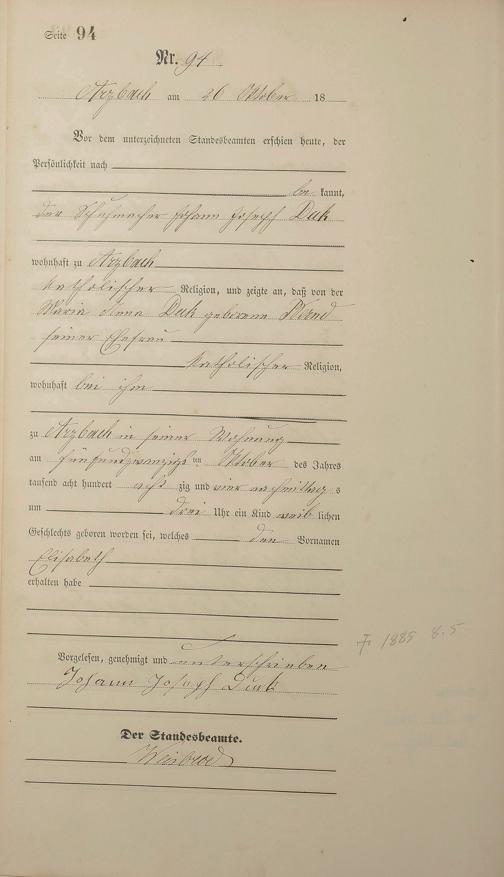 Seite 94
Nr. 94.
Arzbach am 26 Oktober 18
Vor dem unterzeichneten Standesbeamten erschien heute, der
Persönlichkeit nach
be kannt,
der Schuhmacher Johann Joseph
wohnhaft zu Arzbach
katholischer Religion, und zeigte an, daß von der
Maria geborene
seiner Ehefrau
katholischer Religion,
wohnhaft bei ihm
zu Arzbach in seiner Wohnung
am fünfundzwanzigsten Oktober des Jahres
tausend acht hundert acht zig und vier nachmittags
um drei Uhr ein Kind weib lichen
Geschlechts geboren worden sei, welches den Vornamen
Elisabeth
erhalten habe
Vorgelesen, genehmigt und unterschrieben
Johann Joseph
Der Standesbeamte.
1885 8.5